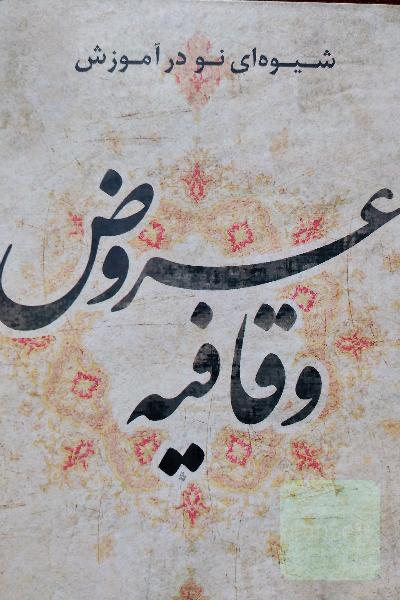 شیوه‌ای نو در آموزش
عروض
و قافیه